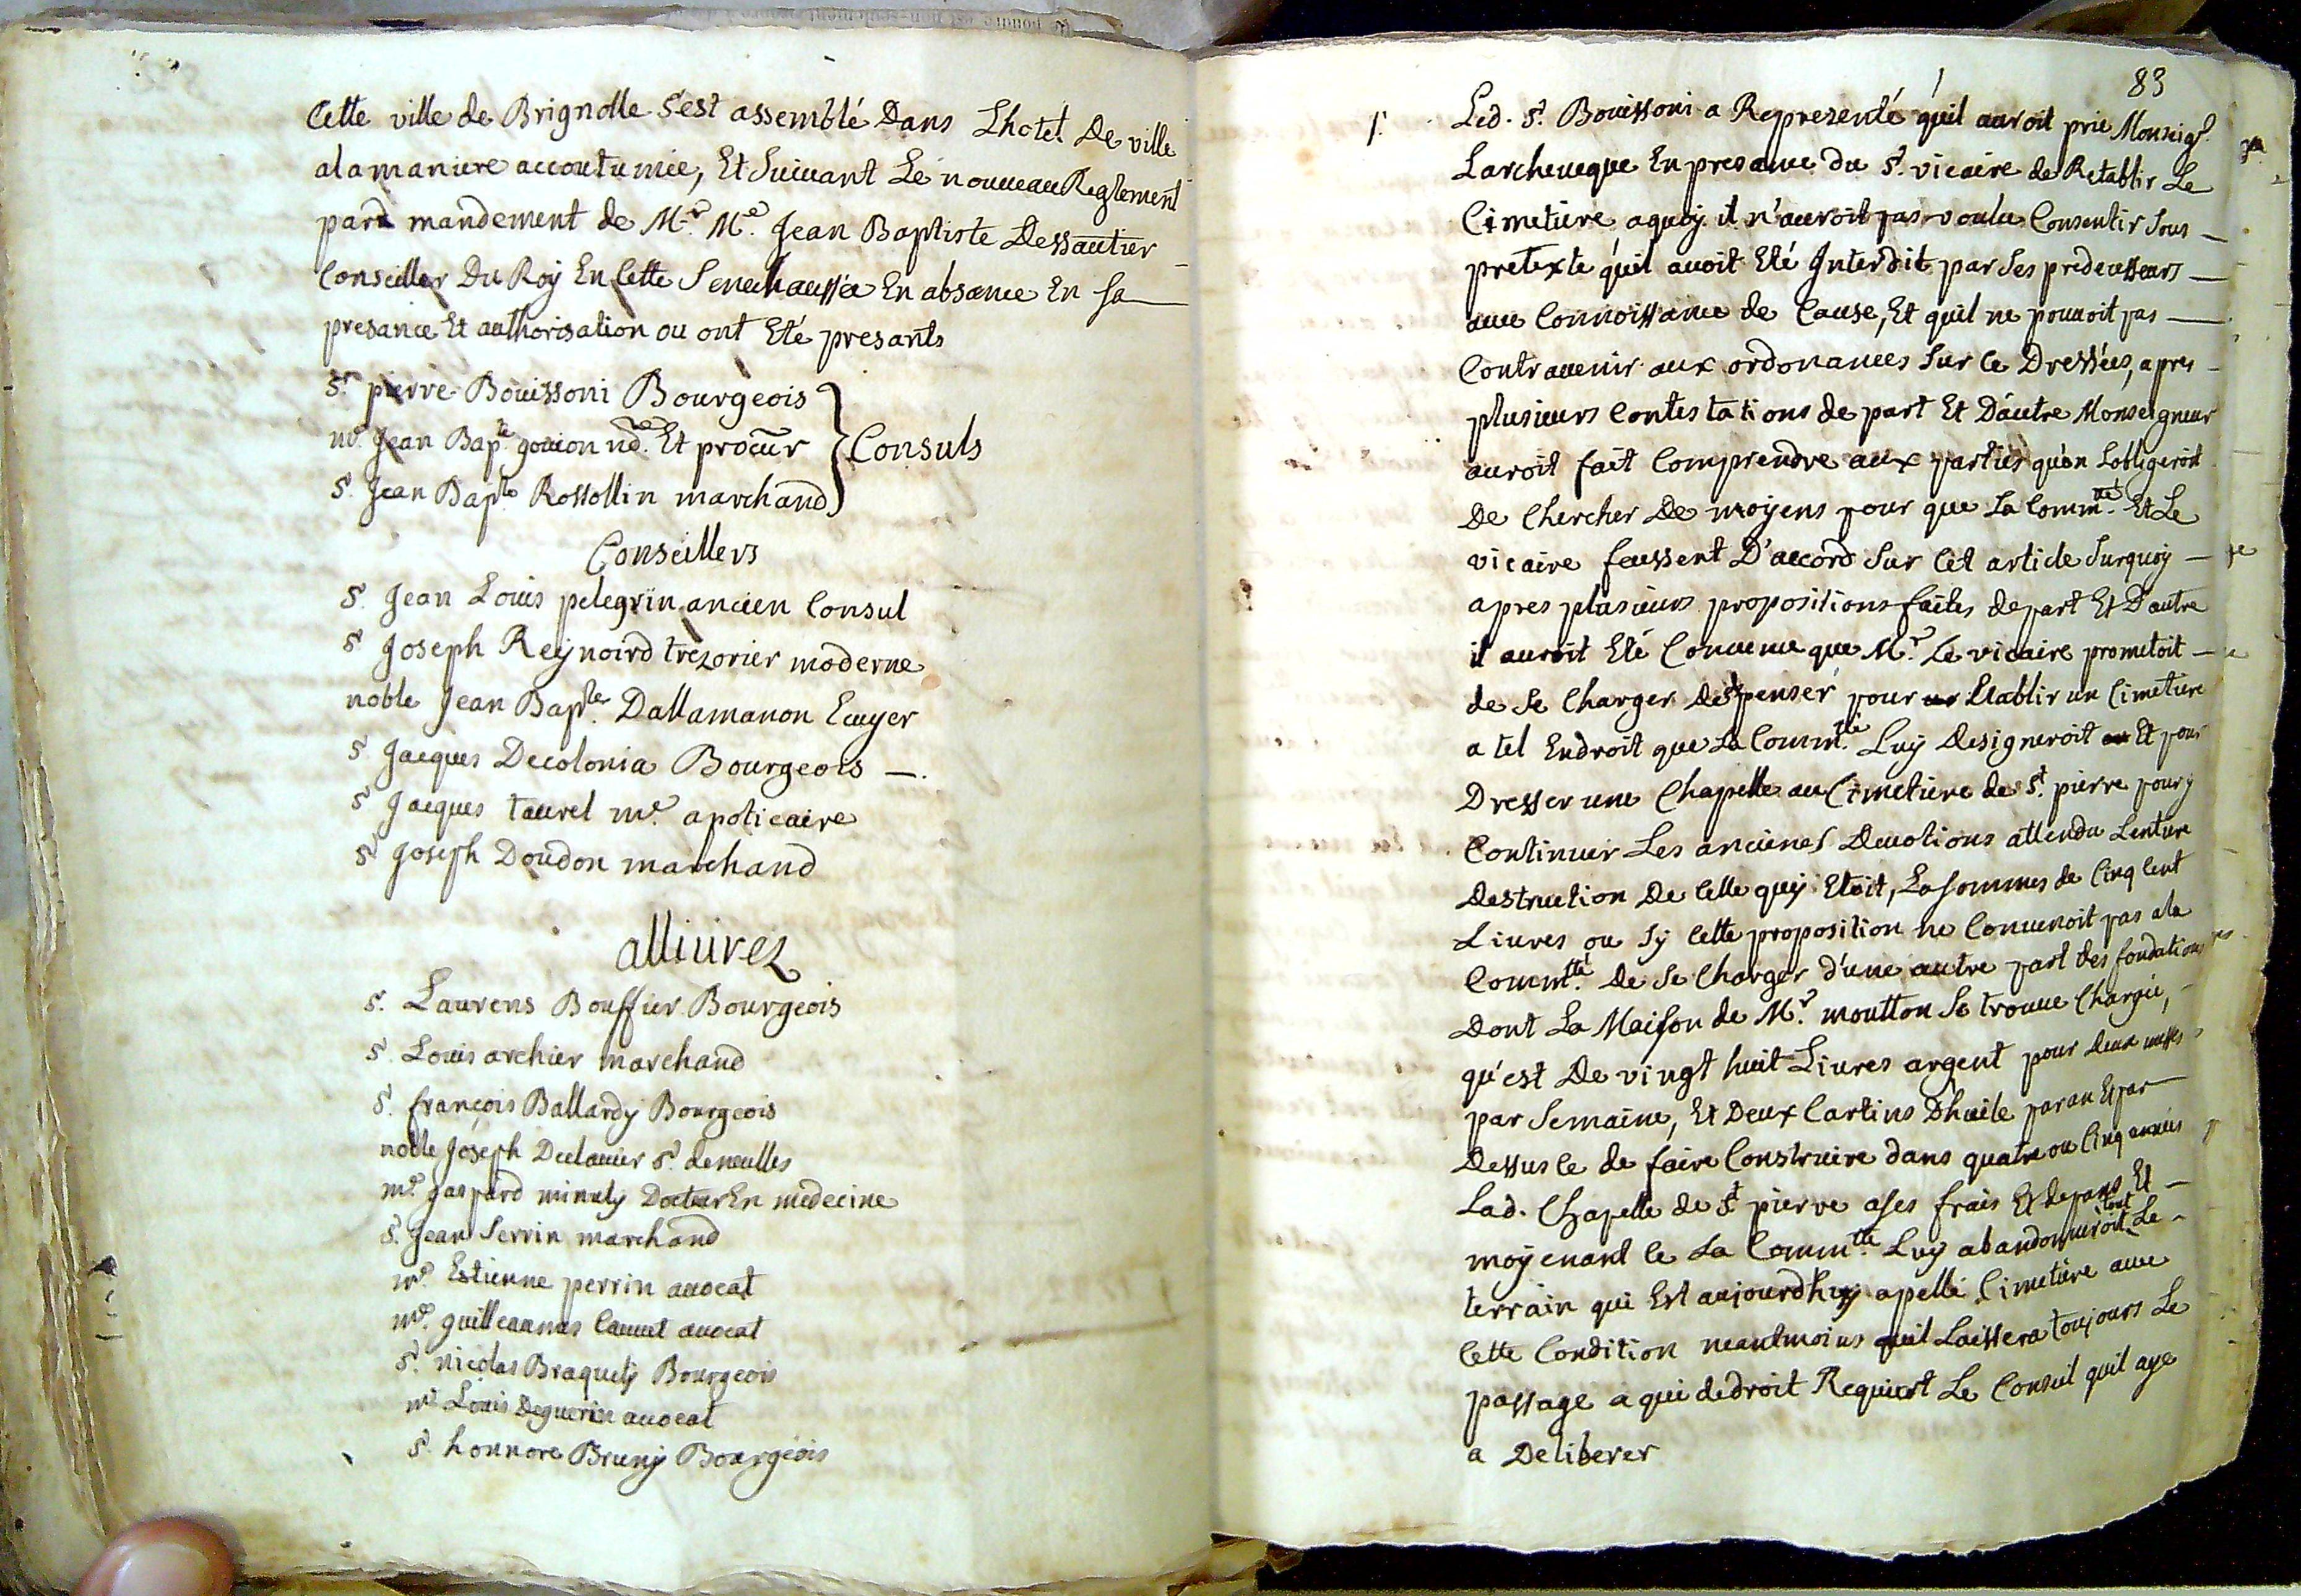 Cette ville de Brignolle S'est assemblé Dans Lhotel De ville
alamaniere accoutumée, Et Suivant Le nouveau Reglement
par mandement de Mr. Me. Jean Baptiste Dessautier
Conseiller Du Roy En Cette Senechaussée En absance En sa
presance Et authorisation ou ont Eté presants
Sr pierre Bouissoni Bourgeois
Me. Jean Bapte. gouion nore. Et procur
Sr. Jean Bapte Rossollin marchand
Consuls
Conseillers
Sr. Jean Louis pelegrin ancien Consul
Sr Joseph Reynoird trezorier moderne
noble Jean Bapte. Dallamanon Ecuyer
Sr Jacques Decolonia Bourgeois —.
Sr Jacques taurel me. apoticaire
Sr Joseph Doudon marchand
alliurez
Sr. Laurens Bouffier Bourgeois
Sr. Louis archier marchand
Sr. françois Ballardy Bourgeois
noble Joseph Sr.
me. gaspard minuty Docteur En medecine
Sr. Jean Serrin marchand
me. Estienne perrin avocat
me. guilleaumes avocat
Sr. nicolas Braquety Bourgeois
me Louis Deguerin avocat
Sr. honnore Bruny Bourgeois
83
1.
Led. Sr. Bouissoni a Reprezenté qu'il auroit prie Monseigr.
Larcheueque En presance du Sr. vicaire de Retablir Le
Cimetiere aquoy il n'auroit pas voulu Consentir Sous —
pretexte qu'il auoit Eté Interdit par Ses predecesseurs —
auec Connoissance de Cause, Et quil ne pouuoit pas —
Contrauenir aux ordonances Sur ce Dressées, apres
plusieurs Contestations de part Et D'autre Monseigneur
auroit fait Comprendre aux parties qu'on Lobligeroit
De Chercher De moyens pour que La Commté. Et Le
vicaire feussent D'accord Sur Cet article Surquoy —
apres plusieurs propositions faites depart Et D'autre
il auroit Eté Conuenue que Mr. Le vicaire prometoit —
de Se Charger pour Etablir un Cimetiere
a tel Endroit que La Commté. Luy Designeroit Et pour
Dresser une Chapelle au Cimetiere de St. pierre pour y
Continuer Les anciènes Deuotions attendu Lentiere
Destruction De Celle quy Etoit, La sommes de Cinq Cent
Liures ou Sy Cette proposition ne Conuenoit pas ala
Commté. De Se Charger d'une autre part des fondations
Dont La Maison de Mr. moutton Se trouue Chargée,
qu'est De vingt huit Liures argent pour deux messes
par Semaine, Et Deux Cartins D'huile par an Et par —
Dessus ce de faire Construire dans quatre ou Cinq années
Lad. Chapelle de St pierre ases frais Et depans Et —
moyenant ce La Commté. Luy abandonneroit tout Le
terrain qui Est aujourdhuy apellé Cimetiere auec
Cette Condition neantmoins quil Laissera toujours Le
passage a qui dedroit Requiert Le Conseil quil aye
a Deliberer